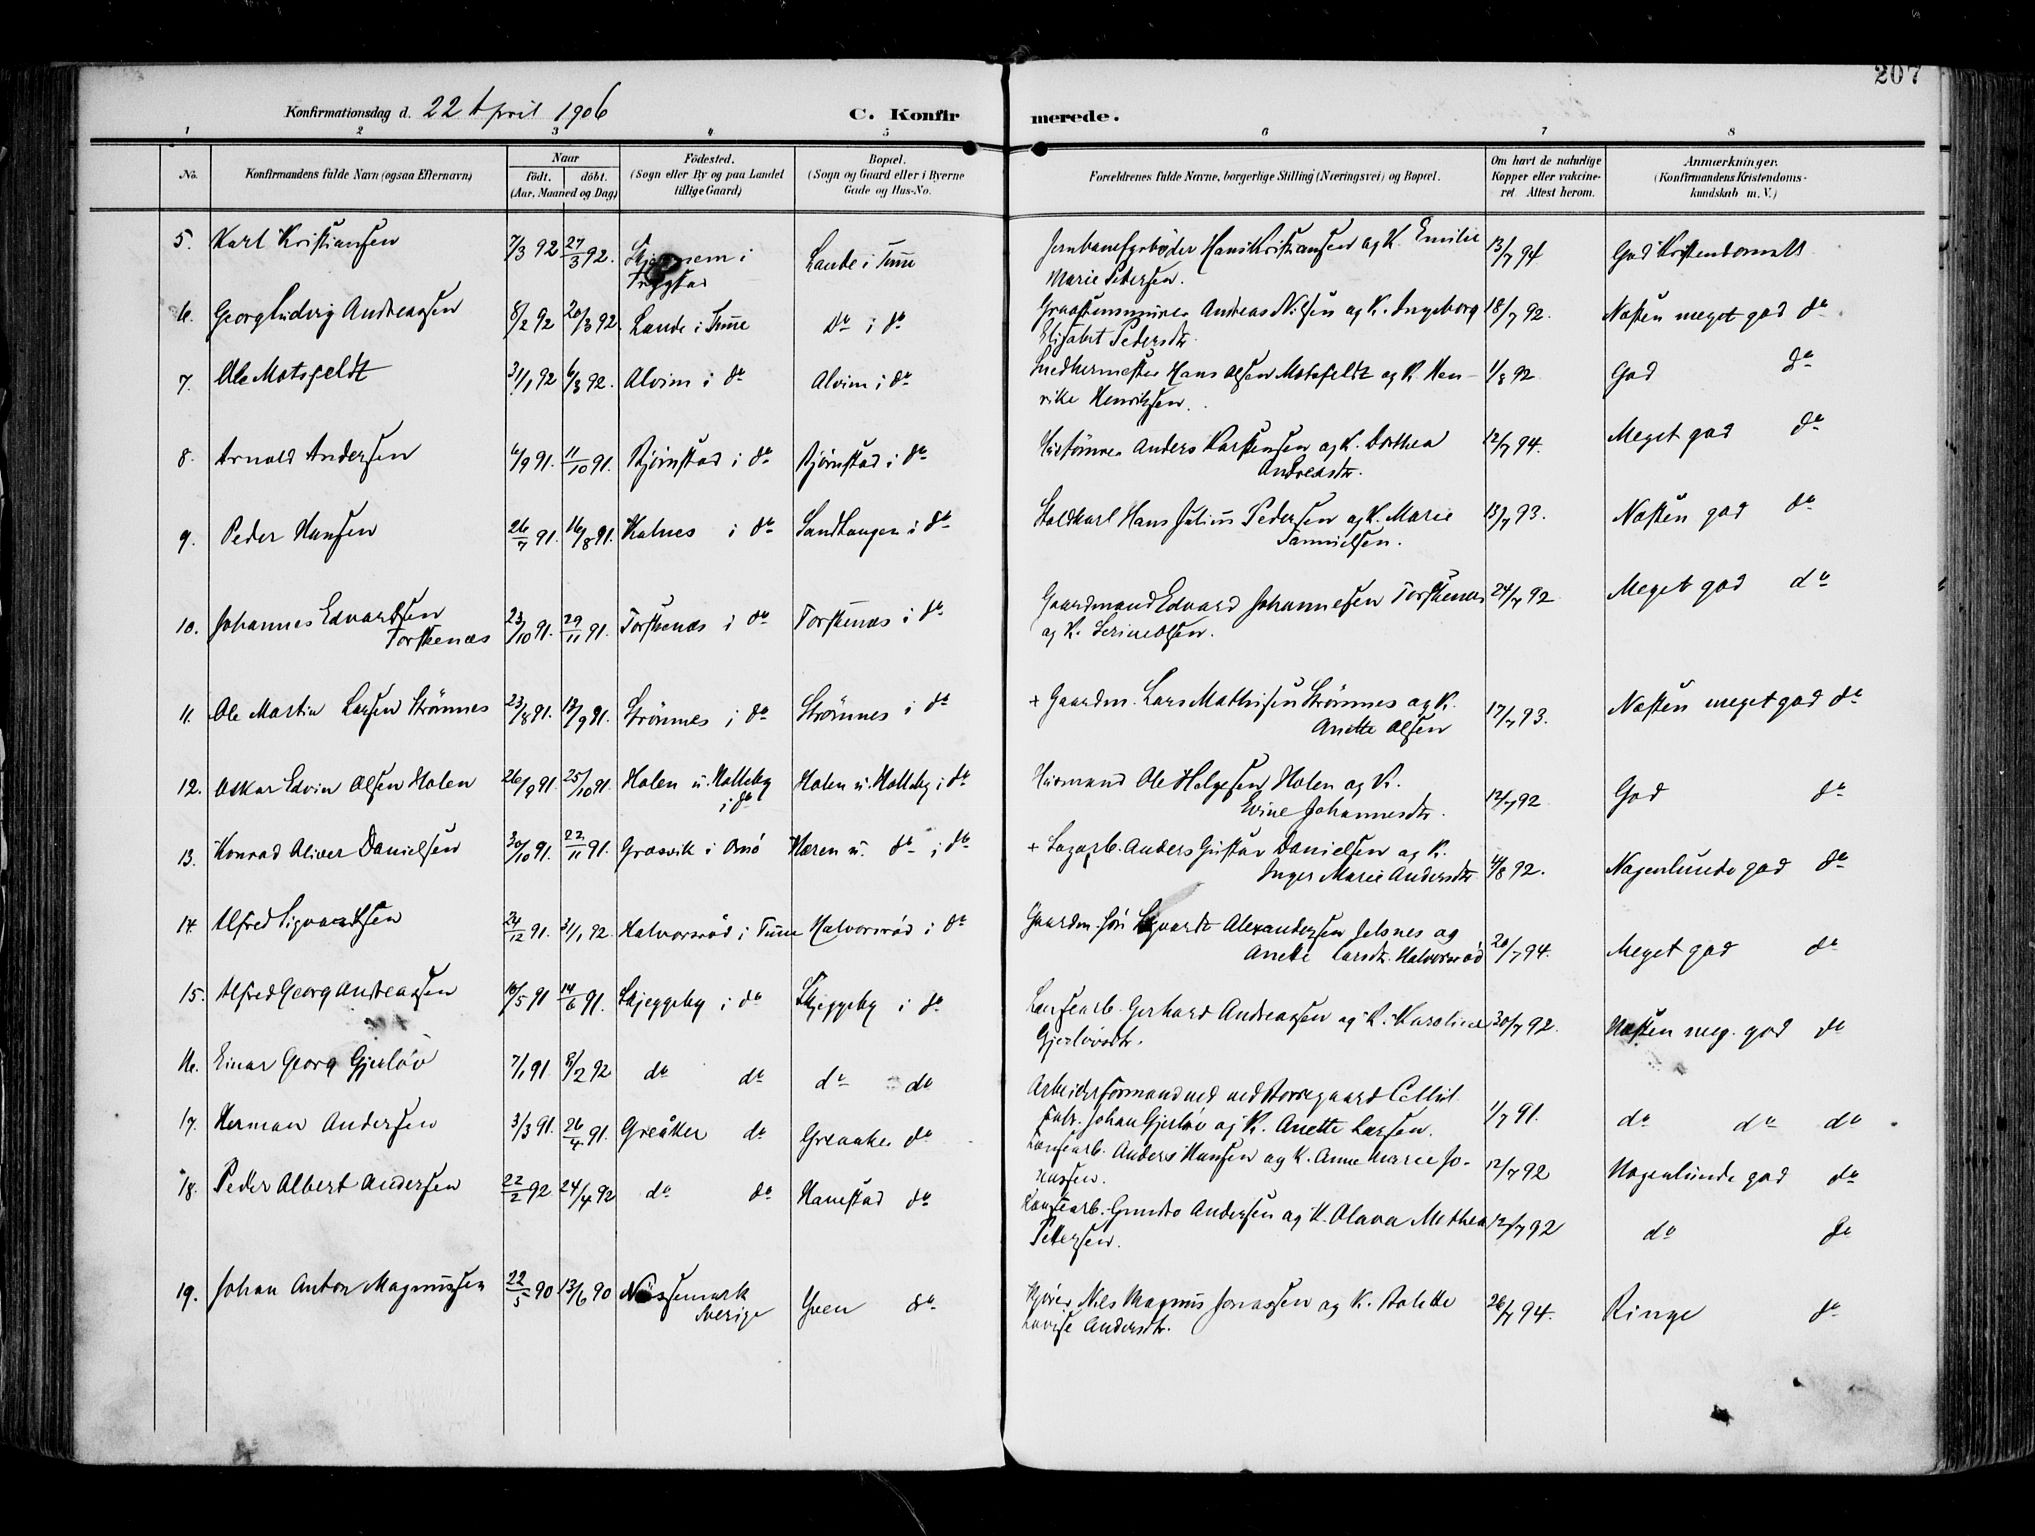 207
Konfirmationsdag d. 22 April 1906 C. Konfir merede.
1 2 3 4 5 6 7 8
No. Konfirmandens fulde Navn (ogsaa Efternavn) Naar født. døbt. (Aar, Maaned og Dag) Födested. (Sogn eller By og paa Landet tillige Gaard) Bopæl. (Sogn og Gaard eller i Byerne Gade og Hus-No. Forældrenes fulde Navne, borgerlige Stilling (Næringsvei) og Bopæl. Om havt de naturlige Kopper eller vakcineret Attest herom. Anmærkninger. (Konfirmandens Kristendomskundskab m. V.)
5. Karl Kristiansen 7/3 92 27/3 92. i Trygstad Lande i Tune Jernbanefyrbøder Hans Kristiansen og K. Emilie 13/7 94 God Kristendomsk
Marie Petersen.
6. Georg Ludvig Andreassen 8/2 92 20/3 92. Lande i Tune do i do Graastensminer Andreas Nilsen og K. Ingeborg 18/7 92. Næsten meget god do
Elisabet Pedersdtr.
7. Ole Motzfeldt 31/1 92 6/3 92. Alvim i do Alvim i do Smedkermester Hans Olsen Motzfeldt og K. Hen- 1/8 92 God do
rike Henriksen.
8. Arnold Andersen 6/9 91. 11/10 91. Bjørnstad i do Bjørnstad i do Anders Karstensen og K. Dorthea 12/7 94. Meget god do
Andreasdtr.
9. Peder Hansen 26/7 91. 16/8 91. Kalnes i do Sandtangen i do Staldkarl Hans Julius Pedersen og K. Marie 13/7 93. Næsten god do
Danielsen.
10. Johannes Edvardsen 23/10 91. 29/11 91. Torskenæs i do Torskenæs i do Gaardmand Edvard Johannesen Torskenæs 24/7 92 Meget god do
Torskenæs og K. Serine Olsen.
11. Ole Martin Larsen Strømnes 23/8 91. 17/9 91. Strømnes i do Strømnes i do + Gaardm. Lars Mathisen Strømnes og K. 17/7 93. Næsten meget god do
Anette Olsen
12. Oskar Edvin Olsen Holen 26/9 91. 25/10 91. Holen u. Holleby i do Holen u. Holleby i do Husmand Ole Helgesen Holen og K. 12/7 92 God do
Evine Johannesdtr.
13. Konrad Oliver Danielsen 30/10 91. 22/11 91. Græsvik i Onsø Hæren u. do i do + Sagarb. Anders Gustav Danielsen og K. 4/8 92. Nogenlunde god do
Inger Marie Andersdtr.
14. Alfred Sigvardsen 24/12 91. 31/1 92. Halvorsrød i Tune Halvorsrød i do Gaardm. søn Sigvardt Alexandersen Jelsnes og 20/7 94. Meget god do
Anette Larsdtr. Halvorsrød
15. Alfred Georg Andreassen 10/5 91 14/6 91. Skjeggeby i do Skjeggeby i do Lensearb. Gerhard Andreassen og K. Karoline 30/7 92. Næsten meg. god do
Gjerløvsdtr.
16. Einar Georg Gjerløv 7/1 91. 8/2 92 do do do do Arbeidsformand ved Borregaard Cellul. 1/7 91. do do do
Fabr. Johan Gjerløv og K. Anette Larsen.
17. Herman Andersen 3/3 91. 26/4 91. Greåker do Greaaker do Lensearb. Anders Hansen og K. Anne Marie Jo- 12/7 92 Nogenlunde god do
hansen.
18. Peder Albert Andersen 22/2 92 24/4 92 do do Hanestad do Lensearb. Gundro Andersen og K. Olava Mathea 12/7 92 do do
Pettersen.
19. Johan Anton Magnussen 22/5 90 13/6 90 Nössemark Sverige Yven do Kjører Nils Magnus Jonassen og K. Bolette 26/7 94. Ringe do
Lovise Andersdtr.